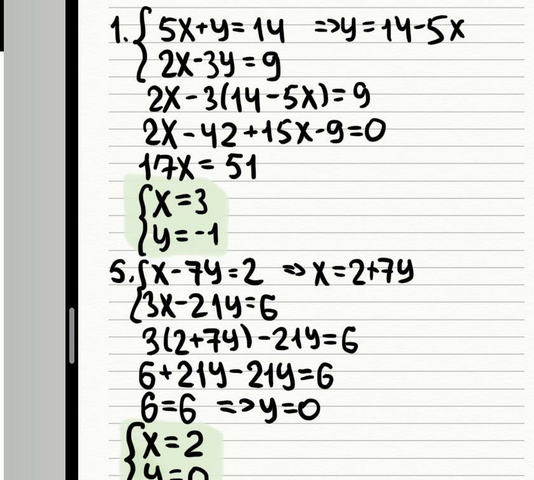 1. { 5x+y=14 => y=14-5x
2x-3y=9
2x-3(14-5x)=9
2x-42+15x-9=0
17x=51
{ x=3
y=-1
5. { x-7y=2 => x=2+7y
3x-21y=6
3(2+7y)-21y=6
6+21y-21y=6
6=6 => y=0
{ x=2
y=0